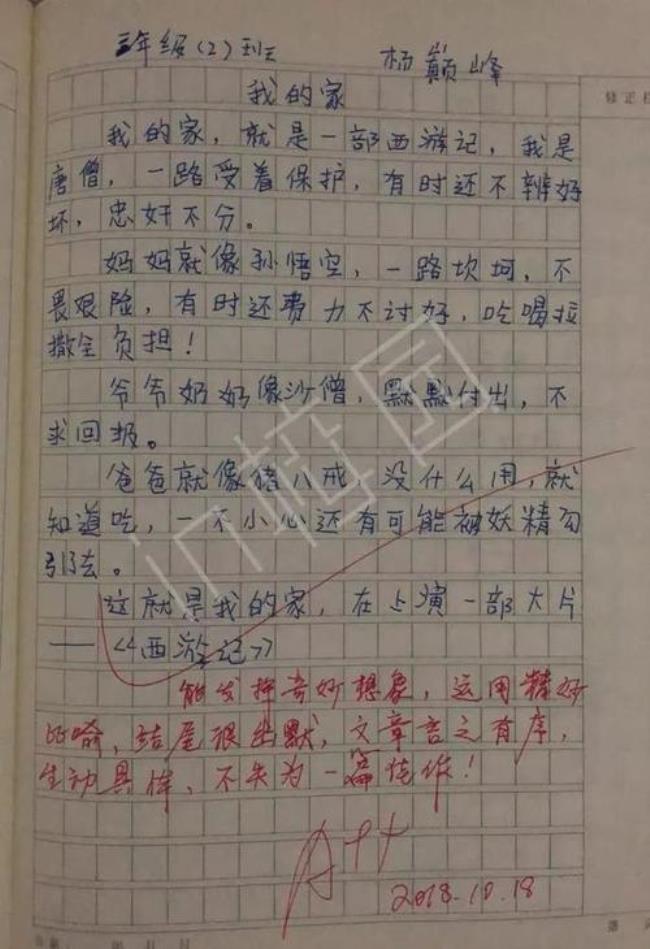 三年级（2）班 杨巅峰
我的家
修正栏
我的家，就是一部西游记，我是
唐僧，一路受着保护，有时还不辨好
坏，忠奸不分。
妈妈就像孙悟空，一路坎坷，不
畏艰险，有时还费力不讨好，吃喝拉
撒全负担！
爷爷奶奶像沙僧，默默付出，不
求回报。
爸爸就像猪八戒，没什么用，就
知道吃，一不小心还有可能被妖精勾
引去。
这就是我的家，在上演一部大片
——《西游记》
能发挥奇妙想象，运用精妙
比喻，结尾很幽默，文章言之有序，
生动具体，不失为一篇佳作！
A++
2018.10.18